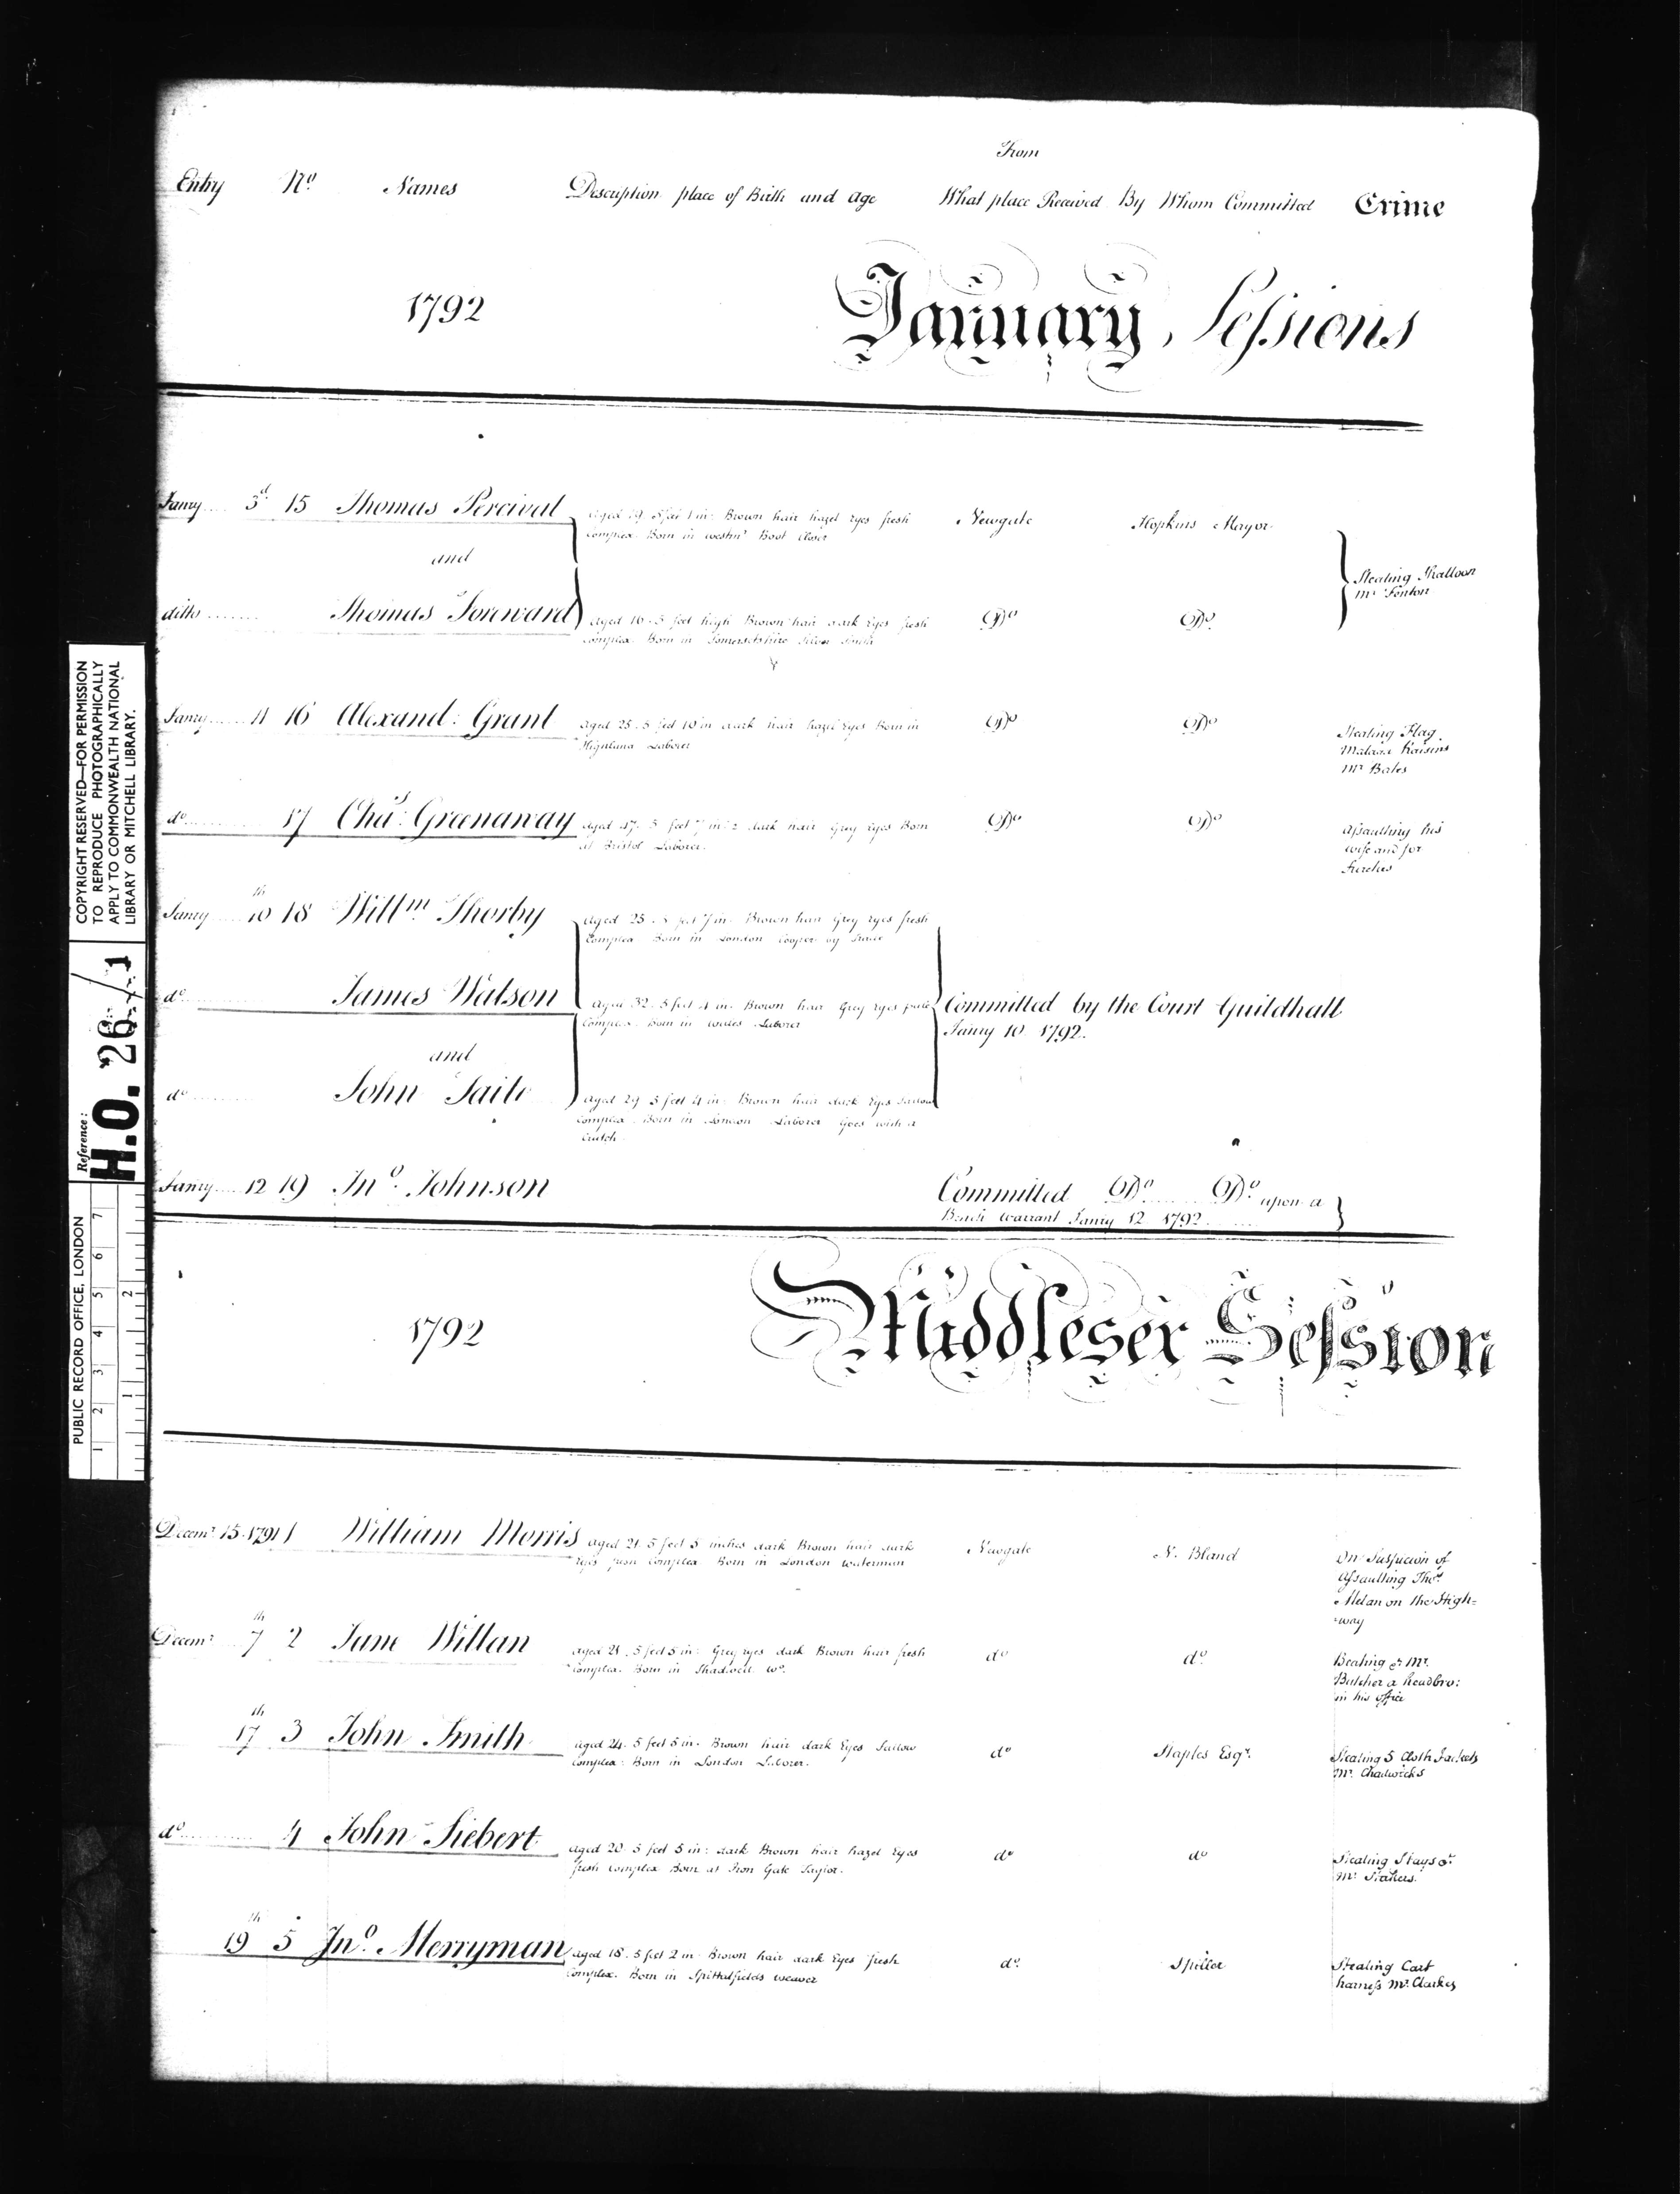 From
Entry No. Names Description place of Birth and Age What place Received By Whom Committed Crime
1792 January Sessions
Janry 3d 15 Thomas Percival aged 19 5 feet 1 in: Brown hair hazel Eyes fresh Newgate Hopkins Mayor
complex. Born in westmr Boot Closer
and
Stealing Shalloon
Mr Fenton
ditto Thomas Forward aged 16. 5 feet high Brown hair dark Eyes fresh Do Do
complex. Born in Somersetshire Silver Smith
Janry 11 16 Alexand: Grant aged 25. 5 feet 10 in dark hair hazel Eyes Born in Do Do Stealing Flag
Highland Laborer Malaga Raisins
Mr Bates
do 17 Chas: Greenaway aged 47. 5 feet 7 in: dark hair Grey Eyes Born Do Do Assaulting his
at Bristol Laborer. wife and for
Sureties
Janry 10th 18 Willm Thorby aged 25. 5 feet 7 in. Brown hair Grey Eyes fresh
complex Born in London Cooper by trade
do James Watson aged 32. 5 feet 4 in. Brown hair Grey Eyes pale Committed by the Court Guildhall
complex. Born in Wales Laborer Janry 10 1792.
and
do John Taite aged 29 5 feet 4 in: Brown hair dark Eyes Sallow
complex. Born in London Laborer Goes with a
Crutch
Janry 12 19 Jno. Johnson Committed Do Do upon a
Bench warrant Janry 12 1792
1792 Middlesex Session
Decemr 15. 1791 1 William Morris aged 21. 5 feet 5 inches dark Brown hair dark Newgate N. Bland On Suspicion of
Eyes fresh complex Born in London waterman Assaulting Thos.
Melan on the High=
=way
Decemr 7th 2 Jane Willan aged 21. 5 feet 5 in: Grey eyes dark Brown hair fresh do do Beating &c Mr.
complex. Born in Shadwell wo. Butcher a headbro:
in his office
17th 3 John Smith aged 24. 5 feet 5 in. Brown hair dark Eyes Sallow do Staples Esqr. Stealing 5 Cloth Jackets
complex: Born in London Laborer. Mr. Chadwicks
do 4 John Siebert aged 20. 5 feet 5 in: dark Brown hair hazel Eyes do do Stealing Stays &c
fresh complex Born at Iron Gate Taylor. Mr.
19th 5 Jno. Merryman aged 18. 5 feet 2 in Brown hair dark Eyes fresh do. Spiller Stealing Cart
complex. Born in Spittalfields weaver harness Mr. Clarkes
COPYRIGHT RESERVED—FOR PERMISSION
TO REPRODUCE PHOTOGRAPHICALLY
APPLY TO COMMONWEALTH NATIONAL
LIBRARY OR MITCHELL LIBRARY.
Reference:
H.O. 26/1
PUBLIC RECORD OFFICE, LONDON
1 2 3 4 5 6 7
1 2